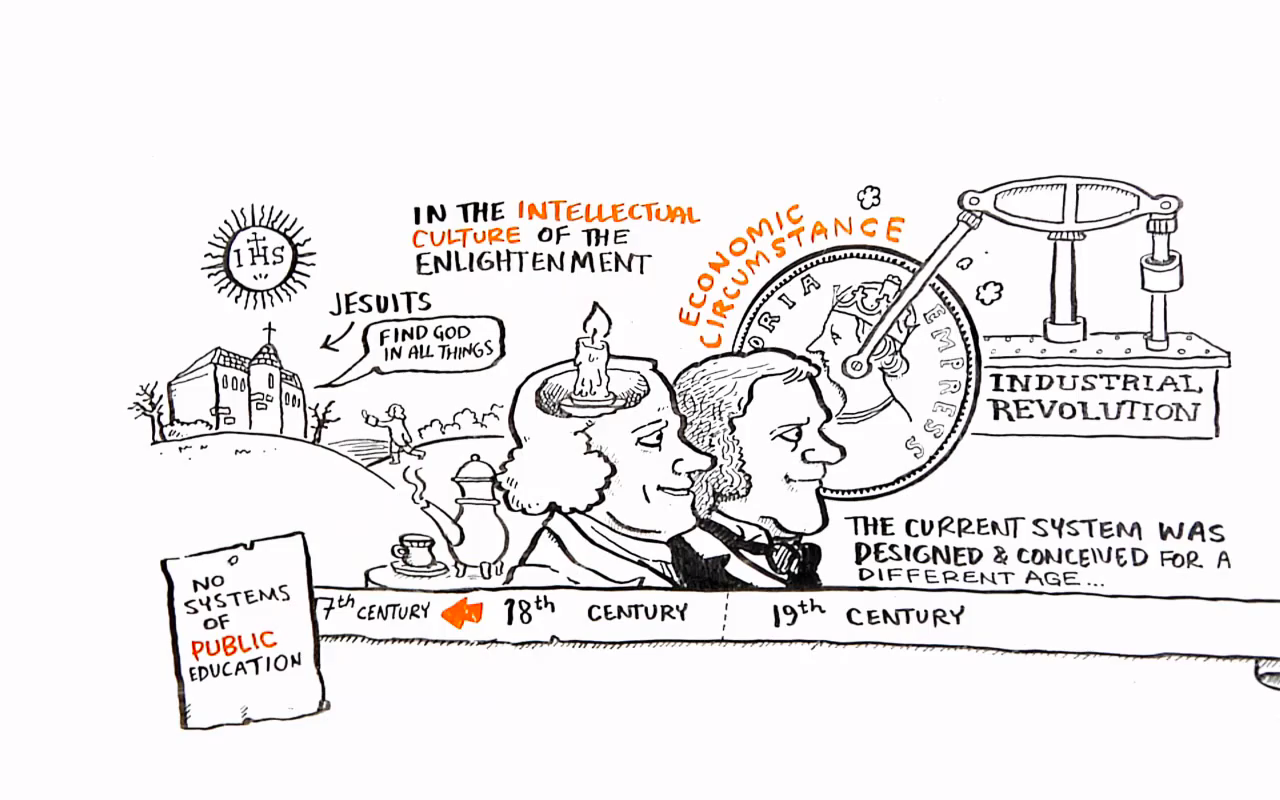 IHS
JESUITS
FIND GOD
IN ALL THINGS
IN THE INTELLECTUAL
CULTURE OF THE
ENLIGHTENMENT
ECONOMIC
CIRCUMSTANCE
ORIA EMPRESS
INDUSTRIAL
REVOLUTION
THE CURRENT SYSTEM WAS
DESIGNED & CONCEIVED FOR A
DIFFERENT AGE...
NO
SYSTEMS
OF
PUBLIC
EDUCATION
7th CENTURY 18th CENTURY 19th CENTURY